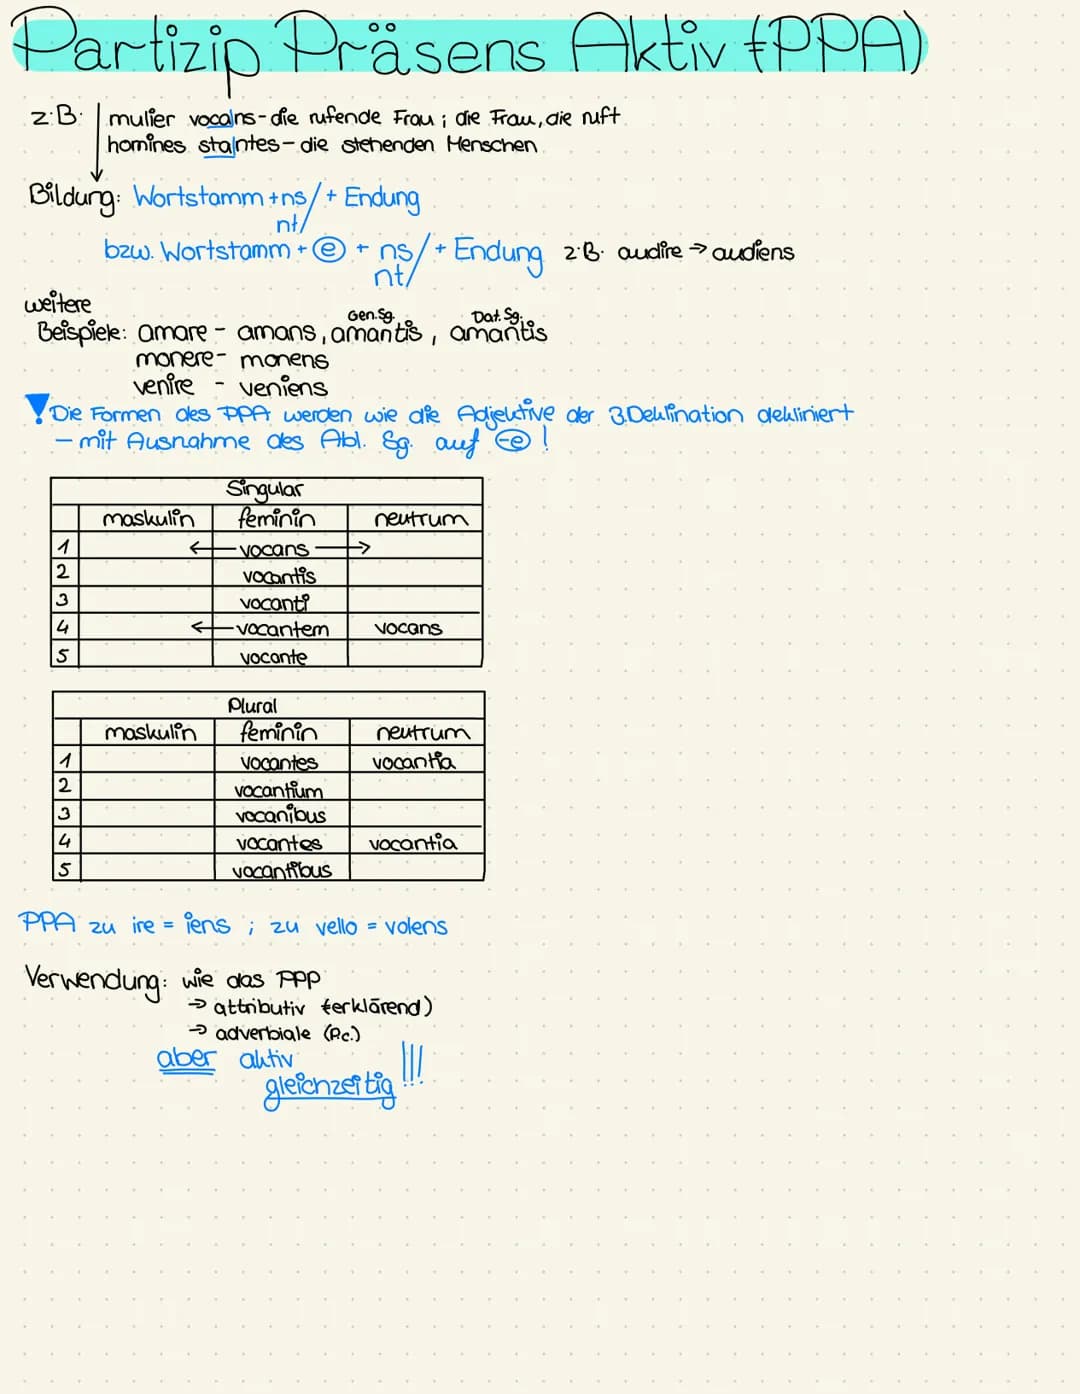 Partizip Präsens Aktiv (PPA)
z.B. mulier vocans - die rufende Frau ; die Frau, die ruft
homines stantes - die stehenden Menschen
Bildung: Wortstamm + ns/ + Endung
nt/
bzw. Wortstamm + e + ns/ + Endung z.B. audire → audiens
nt/
weitere
Gen. Sg. Dat. Sg.
Beispiele: amare - amans, amantis, amantis
monere - monens
venire - veniens
! Die Formen des PPA werden wie die Adjektive der 3. Deklination dekliniert
- mit Ausnahme des Abl. Sg. auf -e !
Singular
maskulin feminin neutrum
1 ← vocans →
2 vocantis
3 vocanti
4 ← vocantem vocans
5 vocante
Plural
maskulin feminin neutrum
1 vocantes vocantia
2 vocantium
3 vocanibus
4 vocantes vocantia
5 vocantibus
PPA zu ire = iens ; zu vello = volens
Verwendung: wie das PPP
→ attributiv (erklärend)
→ adverbiale (P.c.)
aber aktiv
gleichzeitig !!!